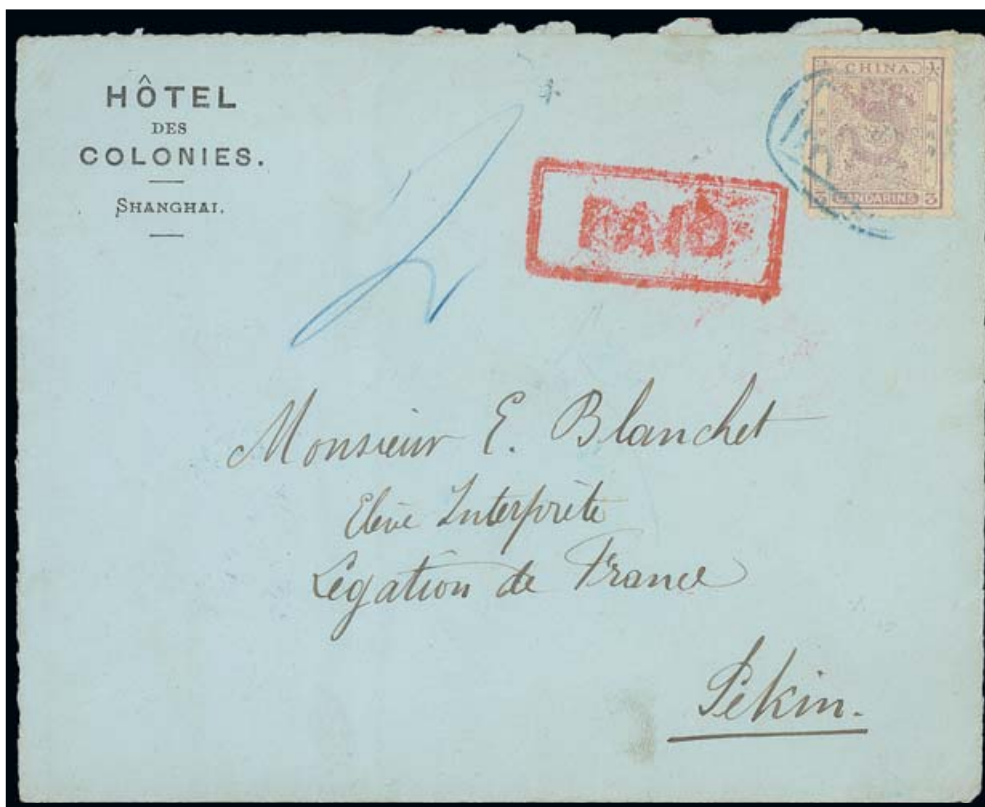 HÔTEL
DES
COLONIES.
SHANGHAI.
CHINA.
大
3 CANDARINS 3
2
PAID
Monsieur E. Blanchet
Elève Interprète
Légation de France
Pékin.